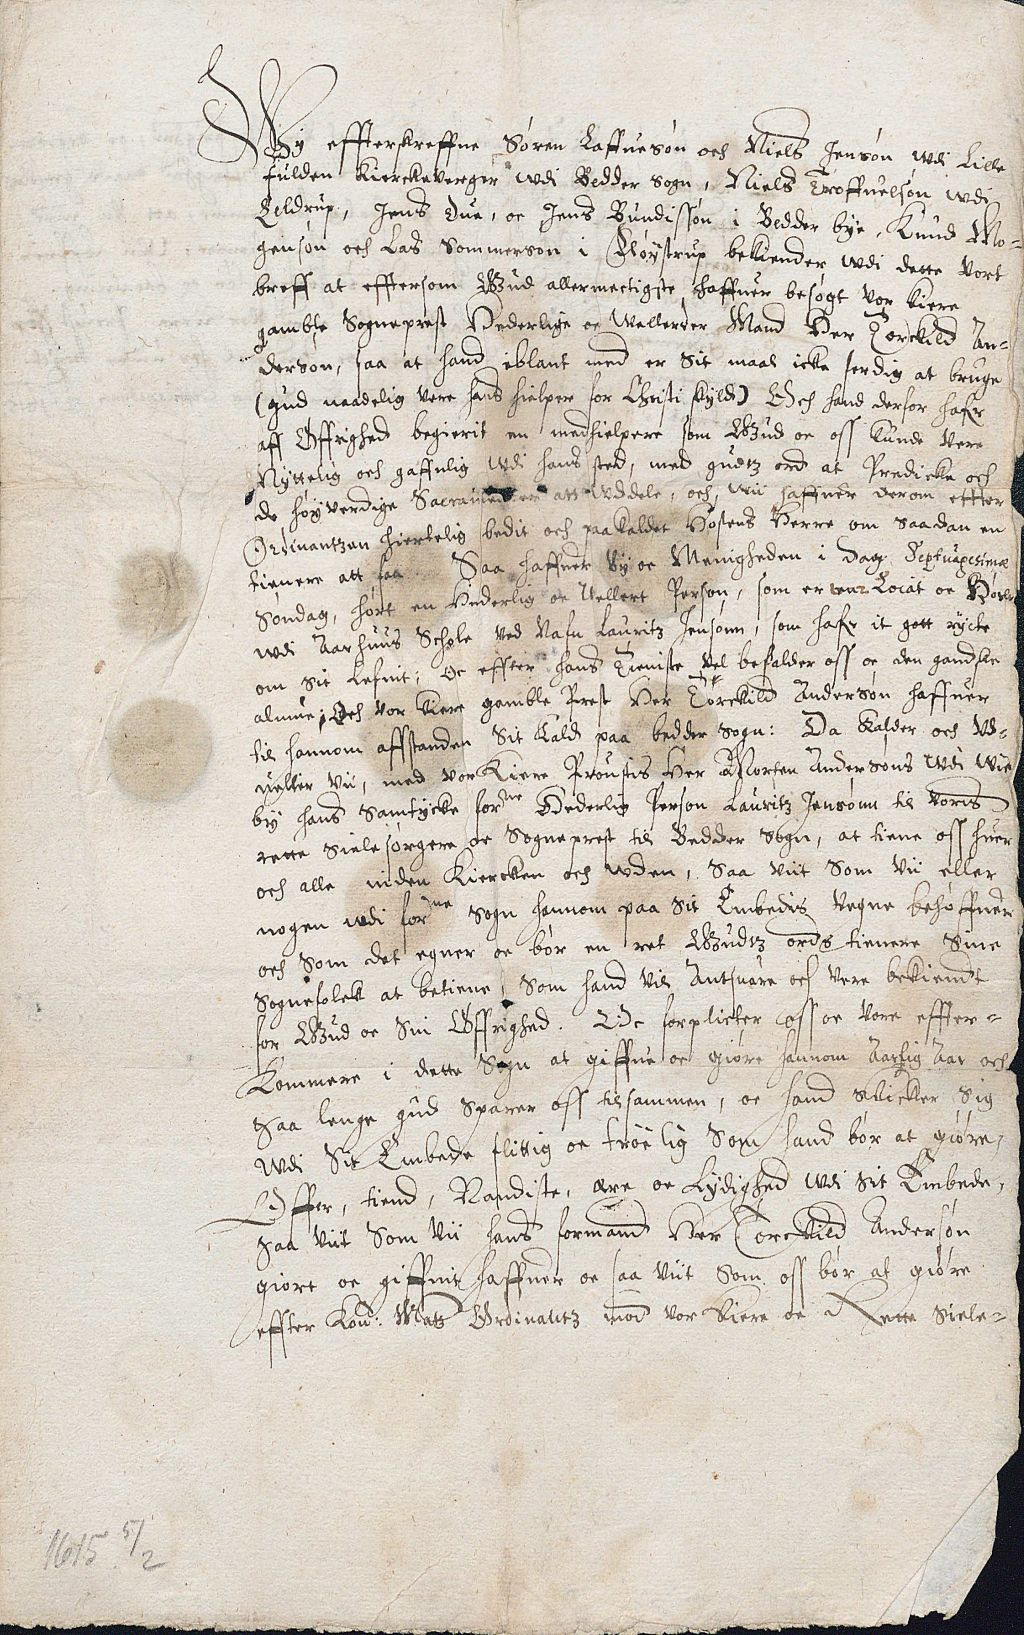 Wy effterskreffne Søren Laffuesøn och Niels Jensøn wdi Lille
fulden Kierckeverger wdi Bedder Sogn, Niels Troffuelsøn wdi
Eeldrup, Jens Due, oc Jens Bundissøn i Bedder bye, Knud Mo-
gensøn och Las Sommersøn i Eløystrup bekiender wdi dette Vort
breff at efftersom Gud allermectigste haffuer besøgt Vor kiere
gamble Sogneprest Hederlige oc Wellerder Mand Her Torckild An-
dersøn, saa at hand iblant med er Sit maal icke ferdig at bruge
(Gud naadelig vere hans hielper for Christi skyld) Och hand derfor hafr
aff Øffrighed begierit en medhielpere som Gud oc oss kunde vere
Nyttelig och gaffnlig wdi hans sted, med gudtz ord at Predicke och
de høyverdige Sacramenter att wddele, och wii haffuer derom effter
Ordinantzen hiertelig bedit och paakaldet Høstens Herre om saadan en
tienere att faa. Saa haffuer Vy oc Menigheden i dag Septuagesimæ
Søndag, hørt en Hederlig oc Vellert Person, som er Locat oc Hører
wdi Aarhuus Schole ved Nafn Lauritz Jensønn, som hafr it gott rycte
om sit Lefnit, Oc effter hans Tieniste vel befalder oss oc den gandske
almue, Och vor kiere gamble Prest Her Torckild Andersøn haffuer
til hannom affstanden Sit Kald paa bedder Sogn: Da Kalder och Vd-
uelger vii, med vor Kiere Proustis Her Morten Andersøns wdi Wii-
by hans Samtycke forne Hederlig Person Lauritz Jensønn til Voris
rette Sielesørgere oc Sogneprest til Bedder Sogn, at tiene oss huer
och alle inden Kiercken och wden, Saa viit Som vii eller
nogen wdi forne Sogn hannom paa Sit Embedis Vegne behøffuer
och Som det egner oc bør en ret Gudtz ords tienere Sine
Sognefolck at betiene, Som hand vil Antsuare och vere bekiendt
for Gud oc Sin Øffrighed. Oc forplicter oss oc Vore effter-
Kommere i dette Sogn at giffue oc giøre hannom Aarlig Aar och
Saa lenge gud Sparer oss tilsammen, oc hand Skicker Sig
wdi Sit Embede flittig oc troelig Som hand bør at giøre,
Offer, tiend, Nandiste, ære oc Lydighed wdi Sit Embede,
Saa viit Som vii hans formand Her Torckild Andersøn
giort oc giffuit haffuer oc saa viit Som oss bør at giøre
effter Kon: Matz Ordinantz mod vor kiere oc Rette Siele-
1615 5/2